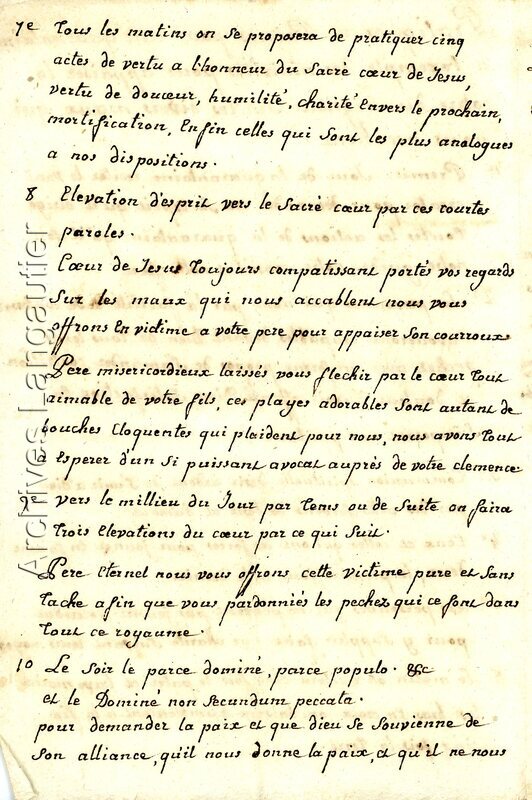 7e Tous les matins on se proposera de pratiquer cinq
actes de vertu a l'honneur du Sacré cœur de Jesus,
vertu de douceur, humilité, charité Envers le prochain,
mortification, Enfin celles qui sont les plus analogues
a nos dispositions.
8 Elevation d'esprit vers le Sacré cœur par ces courtes
paroles.
Cœur de Jesus Toujours compatissant portés vos regards
Sur les maux qui nous accablent nous vous
offrons En victime a votre pere pour appaiser Son courroux
Pere misericordieux laissés vous flechir par le cœur Tout
aimable de votre fils, ces playes adorables Sont autant de
bouches Eloquentes qui plaident pour nous, nous avons Tout
a Esperer d'un Si puissant avocat auprès de votre clemence
9e vers le millieu du Jour par Tems ou de Suite on faira
Trois Elevations du cœur par ce qui Suit.
Pere Eternel nous vous offrons cette victime pure et Sans
Tache afin que vous pardonniés les pechez qui ce font dans
Tout ce royaume.
10 Le Soir le parce dominé, parce populo. &c
et le Dominé non Secundum peccata.
pour demander la paix et que dieu Se Souvienne de
Son alliance, qu'il nous donne la paix, et qu'il ne nous
Archives Langautier